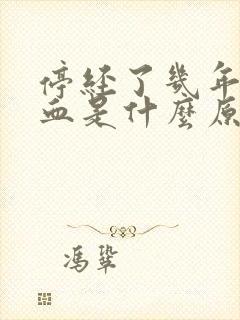 停經了幾年
血是什麼原
馮鞏